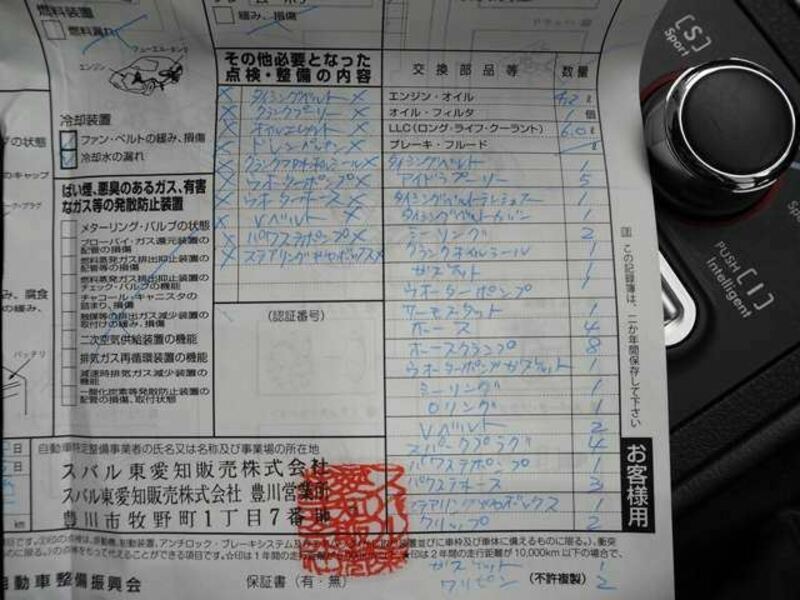 燃料装置
燃料漏れ
フューエル・タンク
エンジン
冷却装置
ファン・ベルトの緩み、損傷
冷却水の漏れ
ばい煙、悪臭のあるガス、有害
なガス等の発散防止装置
メターリング・バルブの状態
ブローバイ・ガス還元装置の
配管の損傷
燃料蒸発ガス排出抑止装置の
配管等の損傷
燃料蒸発ガス排出抑止装置の
チェック・バルブの機能
チャコール・キャニスタの
詰まり、損傷
触媒等の排出ガス減少装置の
取付けの緩み、損傷
二次空気供給装置の機能
排気ガス再循環装置の機能
減速時排気ガス減少装置の
機能
一酸化炭素等発散防止装置の
配管の損傷、取付状態
緩み、損傷
その他必要となった
点検・整備の内容
× タイミングベルト ×
× クランクプーリー ×
× オイルエレメント ×
× ドレンパッキン ×
× クランクフロントオイルシール ×
× ウオーターポンプ ×
× ウオーターホース ×
× Vベルト ×
× パワステポンプ ×
× ステアリングギヤボックス ×
(認証番号)
交換部品等 数量
エンジン・オイル 4.2 ℓ
オイル・フィルタ 1 個
LLC(ロング・ライフ・クーラント) 6.0 ℓ
ブレーキ・フルード ℓ
タイミングベルト 1
アイドラプーリー 5
タイミングベルトテンショナー 1
タイミングベルトカバー 1
シーリング 2
クランクオイルシール 1
ガスケット 1
ウオーターポンプ
サーモスタット 1
ホース 4
ホースクランプ 8
ウオーターポンプガスケット 1
シーリング 1
Oリング 1
Vベルト 2
スパークプラグ 4
パワステポンプ 1
パワステホース 3
ステアリングギヤボックス 1
クリップ 2
ガスケット 1
ワリピン 2
この記録簿は、二か年間保存して下さい
お客様用
(不許複製)
自動車特定整備事業者の氏名又は名称及び事業場の所在地
スバル東愛知販売株式会社
スバル東愛知販売株式会社 豊川営業所
豊川市牧野町1丁目7番地
自動車整備振興会
保証書(有・無)
バッテリ
[S]
Sport
PUSH [I]
Intelligent